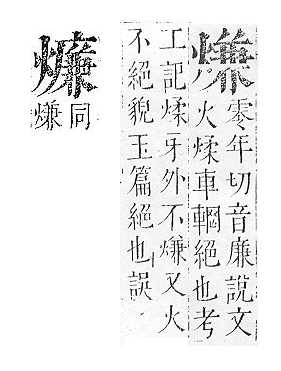 熑
零年切音廉說文
火煣車輞絕也考
工記煣牙外不熑又火
不絕貌玉篇絕也誤
燫
同
熑